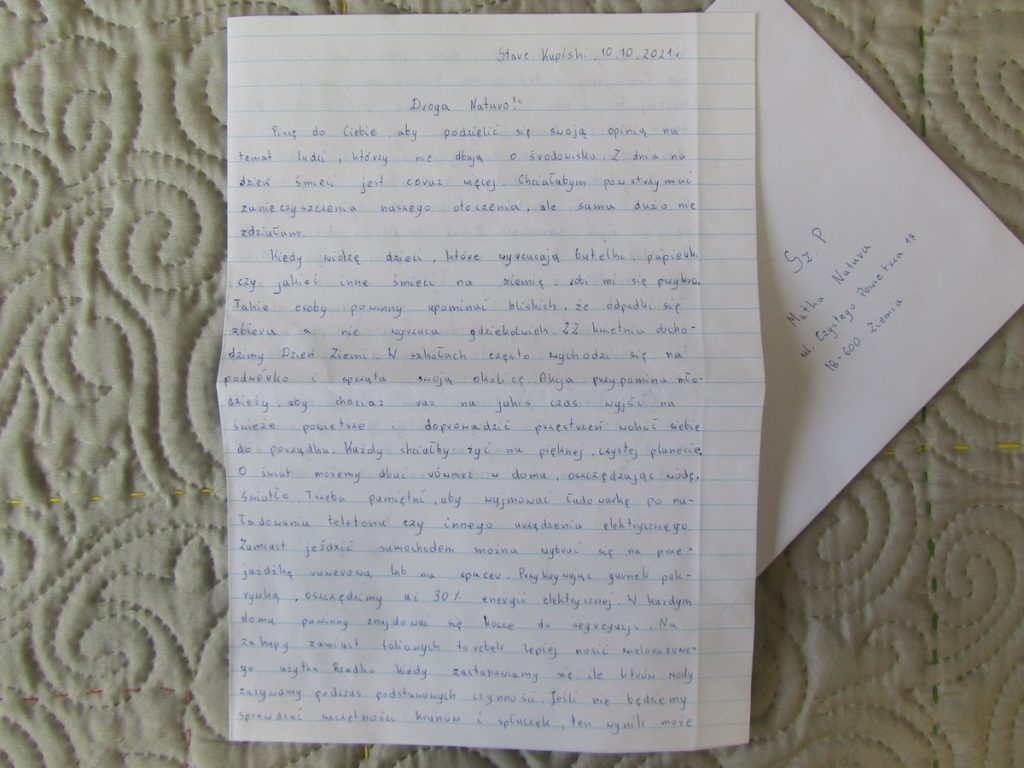 Stare Kupiski, 10.10.2021r.
Droga Naturo!
Piszę do Ciebie, aby podzielić się swoją opinią na
temat ludzi, którzy nie dbają o środowisko. Z dnia na
dzień śmieci jest coraz więcej. Chciałabym powstrzymać
zanieczyszczenia naszego otoczenia, ale sama dużo nie
zdziałam.
Kiedy widzę dzieci, które wyrzucają butelki, papierek
czy jakieś inne śmieci na ziemię, robi mi się przykro.
Takie osoby powinny upominać bliskich, że odpadki się
zbiera a nie wyrzuca gdziekolwiek. 22 kwietnia obcho-
dzimy Dzień Ziemi. W szkołach często wychodzi się na
podwórko i sprząta swoją okolicę. Akcja przypomina mło-
dzieży, aby chociaż raz na jakiś czas wyjść na
świeże powietrze i doprowadzić przestrzeń wokół siebie
do porządku. Każdy chciałby żyć na pięknej, czystej planecie.
O świat możemy dbać również w domu, oszczędzając wodę,
światło. Trzeba pamiętać, aby wyjmować ładowarkę po na-
ładowaniu telefonu czy innego urządzenia elektrycznego.
Zamiast jeździć samochodem można wybrać się na prze-
jażdżkę rowerową lub na spacer. Przykrywając garnek pok-
rywką, oszczędzimy aż 30% energii elektrycznej. W każdym
domu powinny znajdować się kosze do segregacji. Na
zakupy zamiast foliowych torebek lepiej nosić wielorazowe-
go użytku. Rzadko kiedy zastanawiamy się, ile litrów wody
zużywamy podczas podstawowych czynności. Jeśli nie będziemy
sprawdzać szczelności kranów i spłuczek, ten wynik może
Sz. P.
Matka Natura
ul. Czystego Powietrza 18
18-600 Ziemia